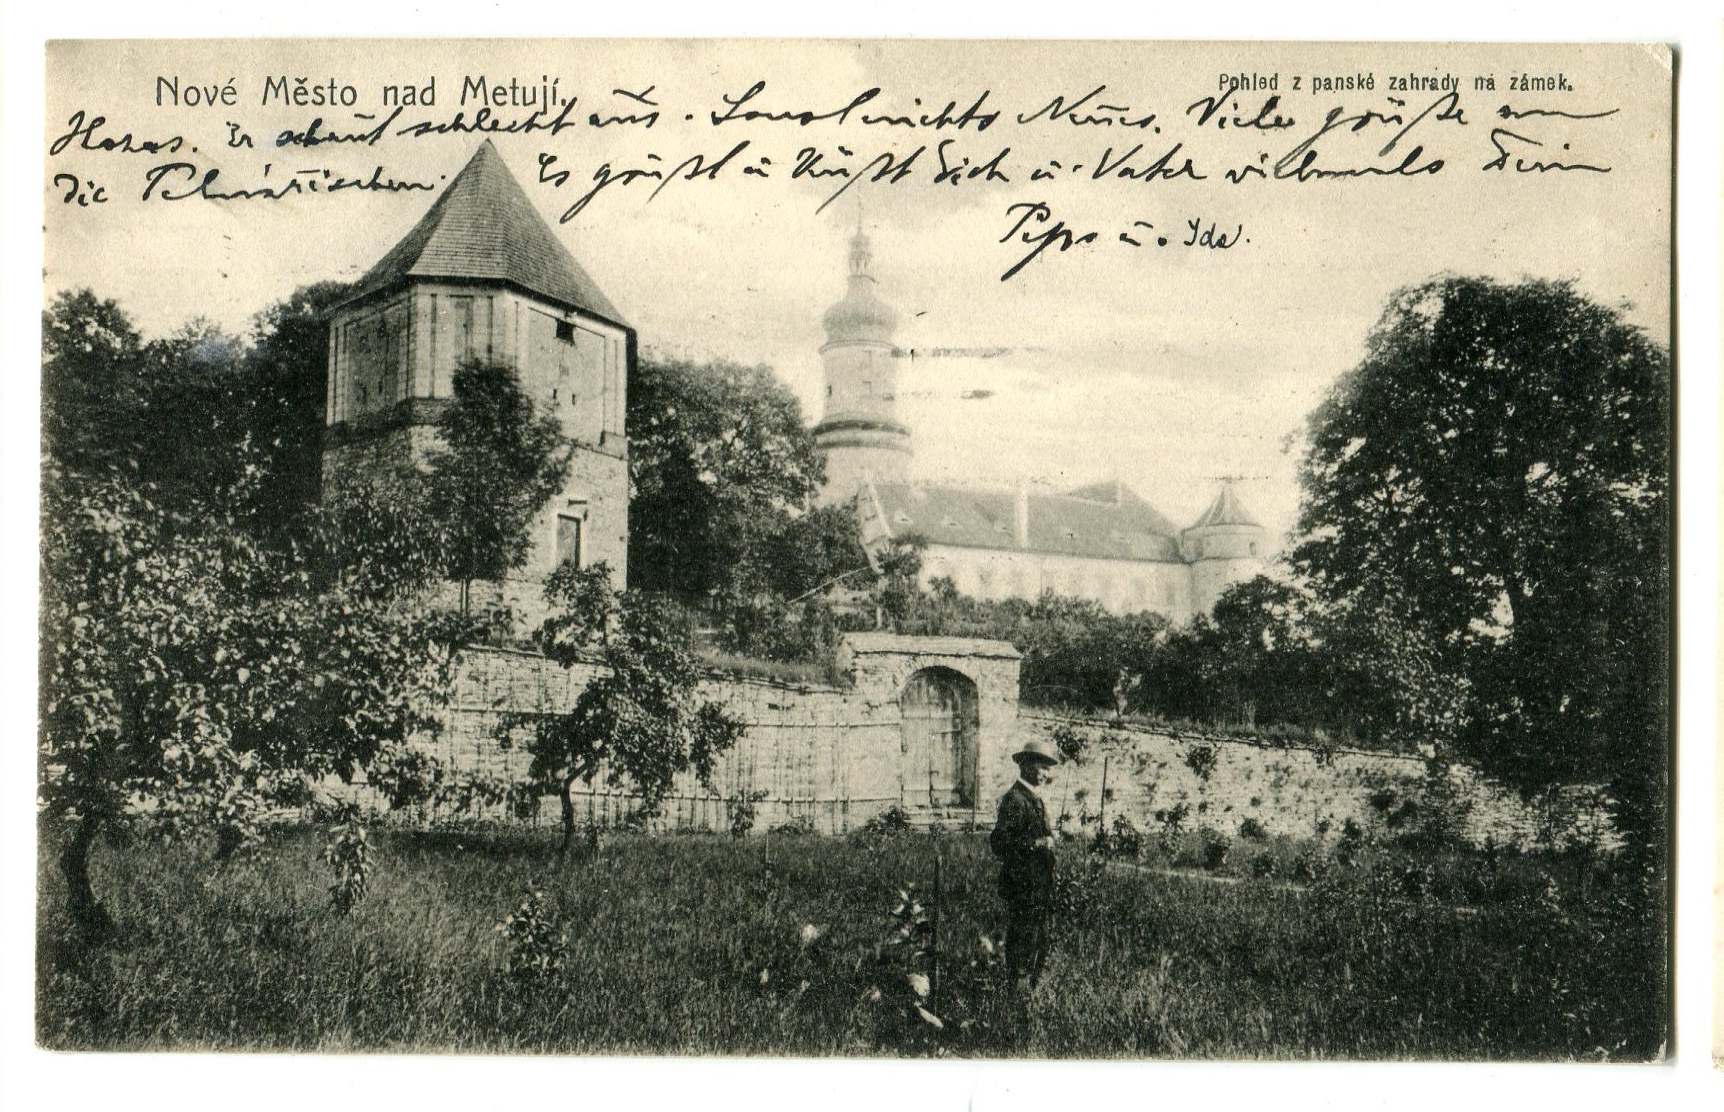 Nové Město nad Metují.
Pohled z panské zahrady na zámek.
Er schaut schlecht aus. Sonst nichts Neues. Viele Grüße an
die Es grüßt u küßt Dich u. Vater vielmals Dein
Pepo u. Ida.